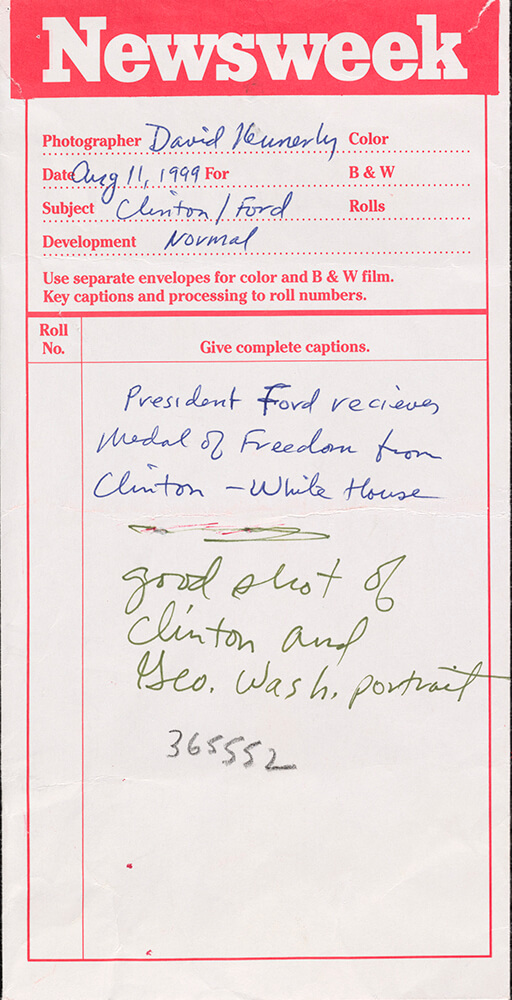 Newsweek
Photographer David Kennerly Color
Date Aug 11, 1999 For B & W
Subject Clinton / Ford Rolls
Development Normal
Use separate envelopes for color and B & W film.
Key captions and processing to roll numbers.
Roll
No.
Give complete captions.
President Ford recieves
Medal of Freedom from
Clinton – White House
good shot of
Clinton and
Geo. Wash. portrait
365552